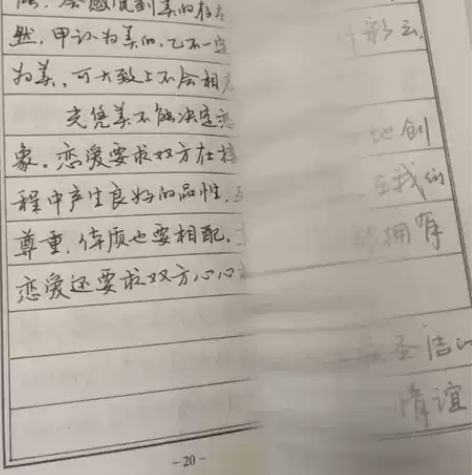 然,甲认为美的,乙不一定
为美,可大致上不会相
光凭美不能决定恋
象。恋爱要求双方在
程中产生良好的品性,
尊重,体质也要相配,
恋爱还要求双方心心
彩云
地创
在我们
拥有
圣洁
情谊
-20-